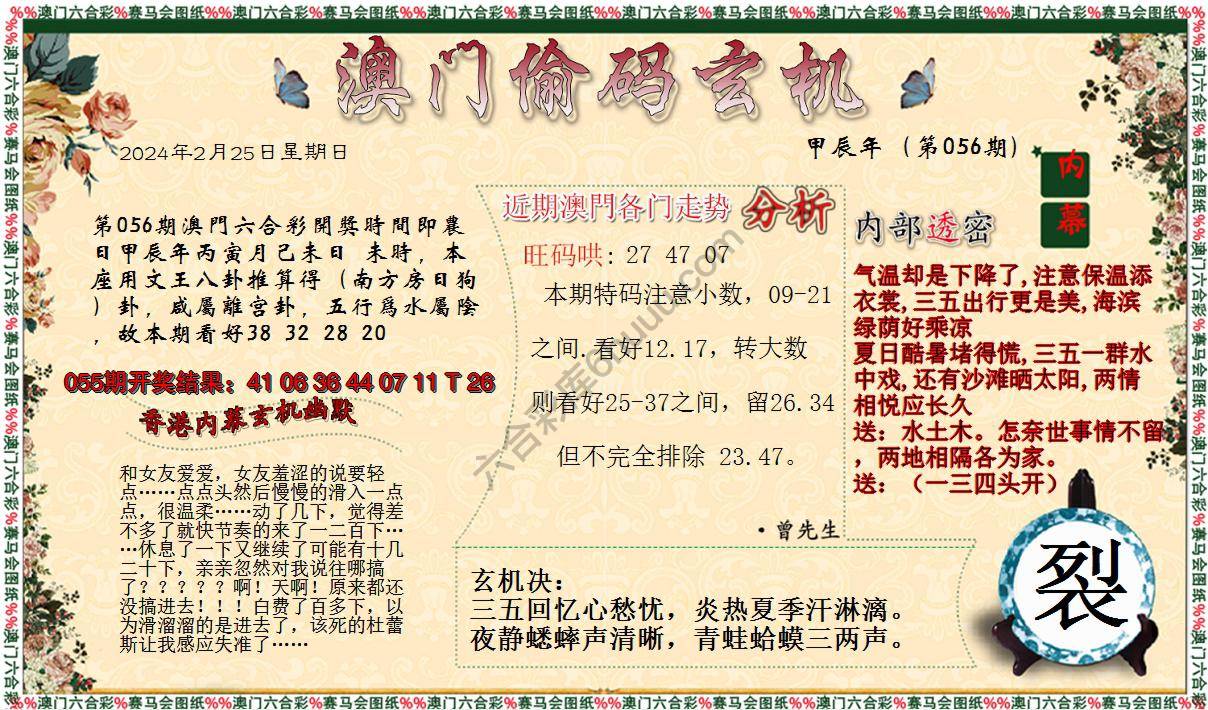 %%澳门六合彩%赛马会图纸%%澳门六合彩%赛马会图纸%%澳门六合彩%赛马会图纸%%澳门六合彩%赛马会图纸%%澳门六合彩%赛马会图纸%%澳门六合彩%赛马会图纸%%
澳门偷码玄机
2024年2月25日星期日
甲辰年（第056期）
内
幕
第056期澳門六合彩開獎時間即農
日甲辰年丙寅月己未日 未時，本
座用文王八卦推算得（南方房日狗
）卦，咸屬離宫卦，五行爲水屬陰
，故本期看好38 32 28 20
055期开奖结果：41 06 36 44 07 11 T 26
香港内幕玄机幽默
和女友爱爱，女友羞涩的说要轻
点……点点头然后慢慢的滑入一点
点，很温柔……动了几下，觉得差
不多了就快节奏的来了一二百下…
…休息了一下又继续了可能有十几
二十下，亲亲忽然对我说往哪搞
了？？？？？啊！天啊！原来都还
没搞进去！！！白费了百多下，以
为滑溜溜的是进去了，该死的杜蕾
斯让我感应失准了……
近期澳門各门走势 分析
旺码哄: 27 47 07
本期特码注意小数，09-21
之间.看好12.17，转大数
则看好25-37之间，留26.34
但不完全排除 23.47。
·曾先生
内部透密
气温却是下降了,注意保温添
衣裳,三五出行更是美,海滨
绿荫好乘凉
夏日酷暑堵得慌,三五一群水
中戏,还有沙滩晒太阳,两情
相悦应长久
送：水土木。怎奈世事情不留
，两地相隔各为家。
送：（一三四头开）
玄机决：
三五回忆心愁忧，炎热夏季汗淋漓。
夜静蟋蟀声清晰，青蛙蛤蟆三两声。
裂
%%澳门六合彩%赛马会图纸%%澳门六合彩%赛马会图纸%%澳门六合彩%赛马会图纸%%澳门六合彩%赛马会图纸%%澳门六合彩%赛马会图纸%%澳门六合彩%赛马会图纸%%